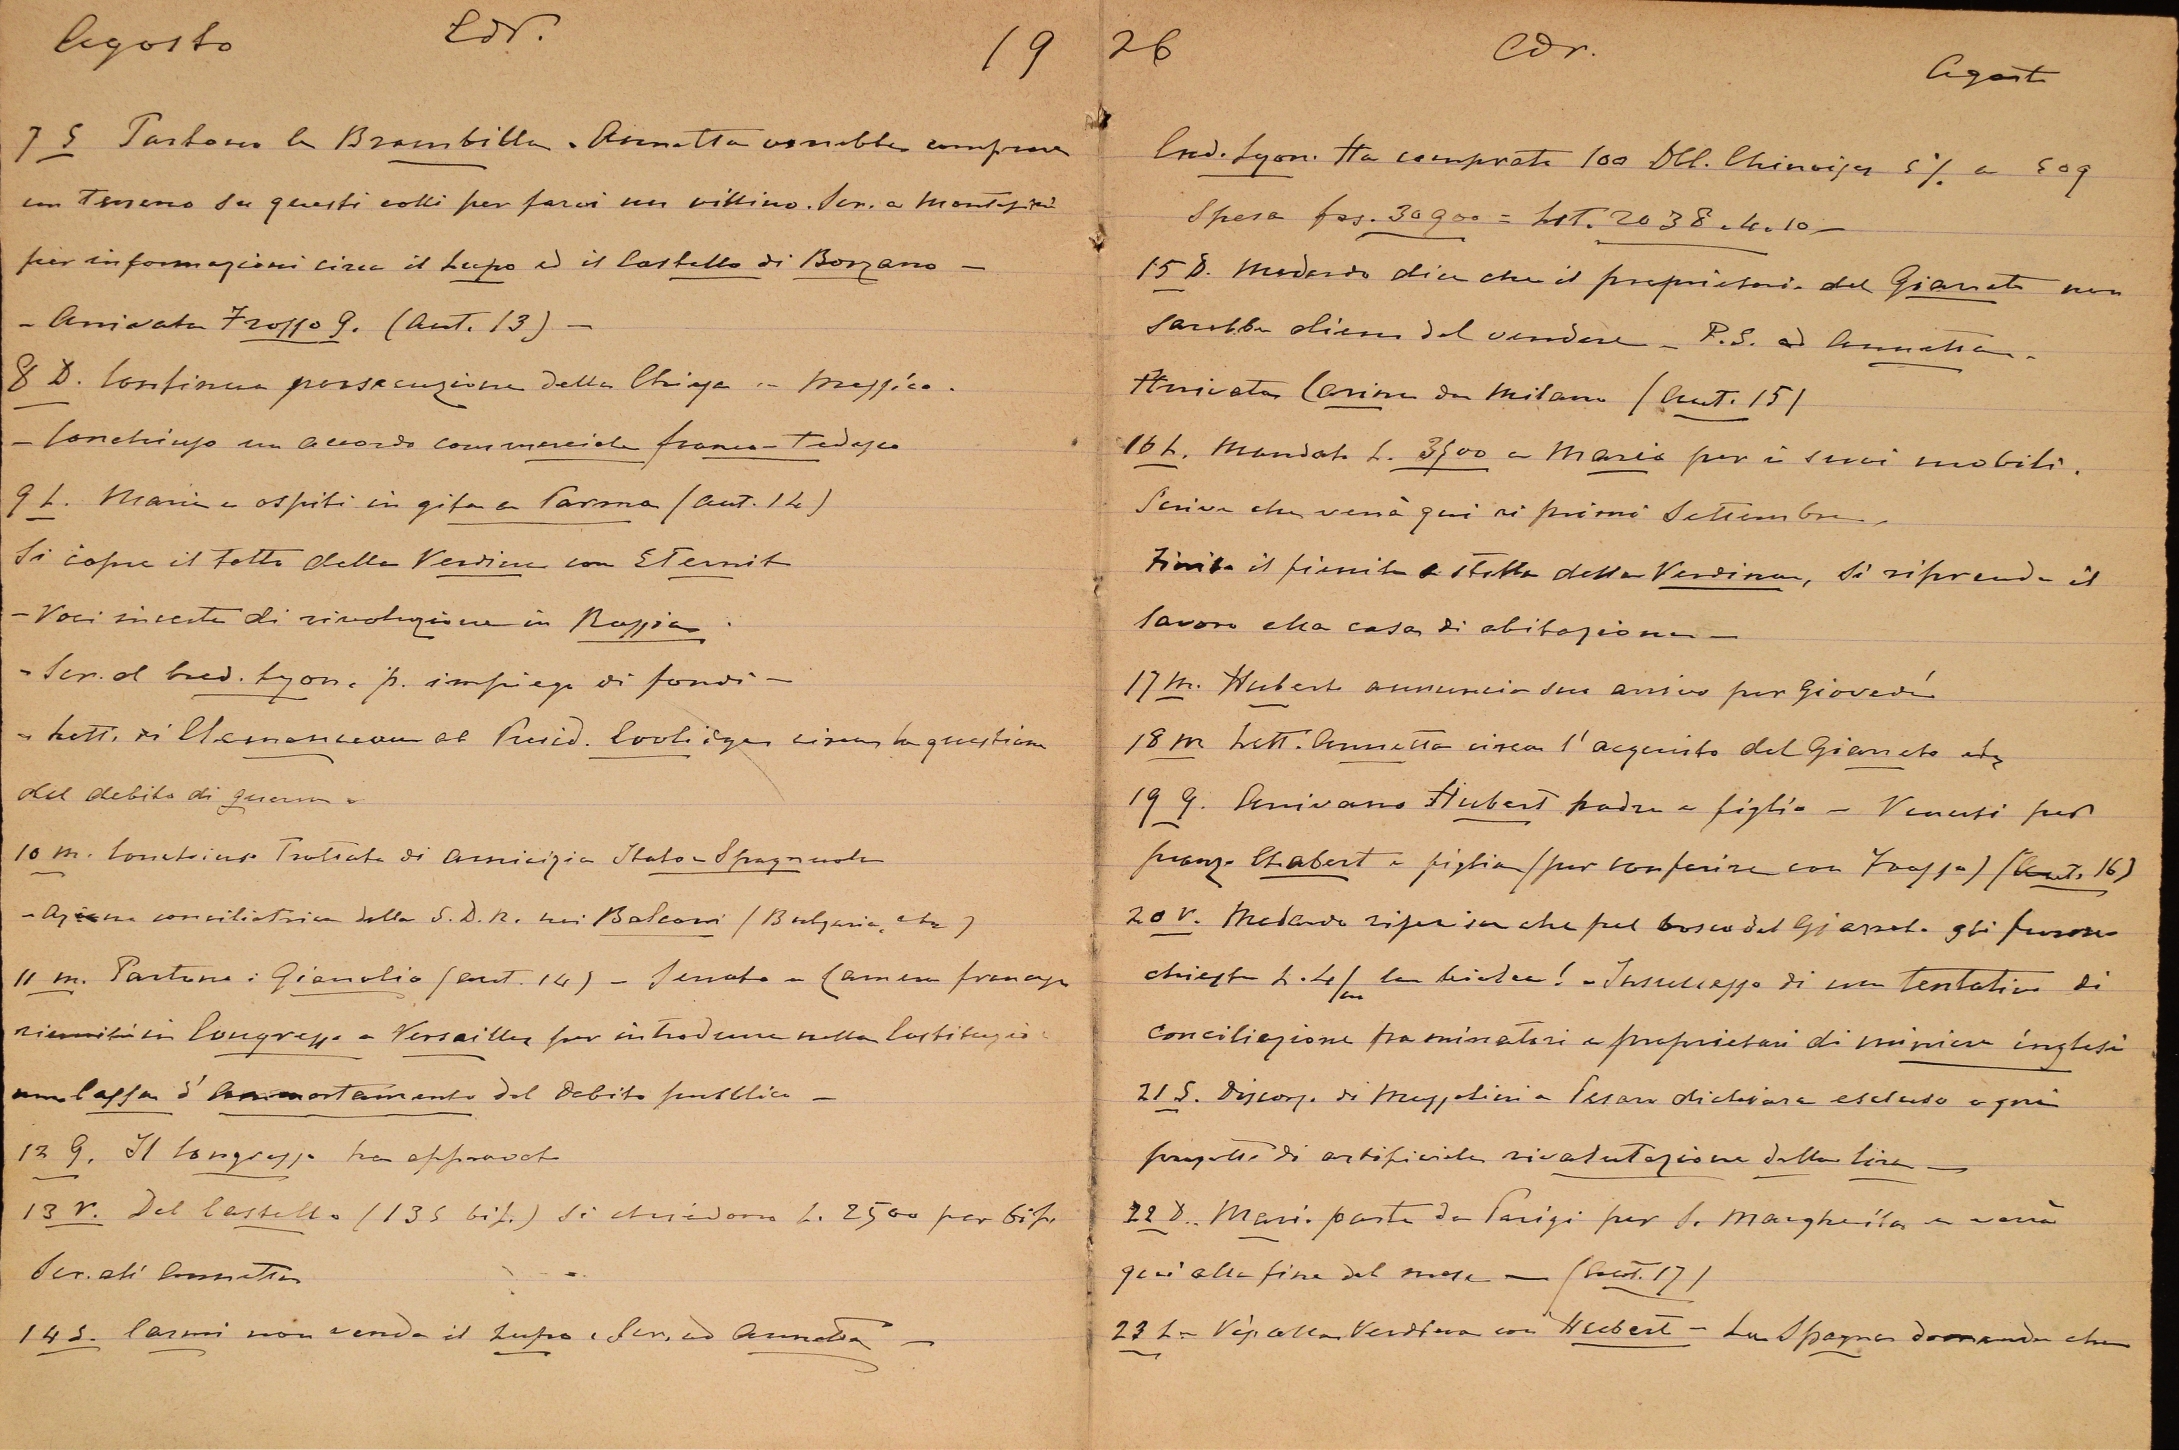 Agosto Cdr. 19
7 S Partono le Brambilla. Annetta vorrebbe comprare
un terreno su questi colli per farvi un villino. Scr. a
per informazioni circa il Lupo ed il Castello di Borzano –
– Arrivata Frosso G. (Aut. 13) –
8 D. Continua persecuzione della Chiesa in Messico.
– Conchiuso un accordo commerciale franco-Tedesco
9 L. Maria e ospiti in gita a Parma (Aut. 14)
Si copre il tetto della Verdina con Eternit
– Voci incerte di rivoluzione in Russia.
– Scr. al Cred. Lyon. p. impiego di fondi –
– Lett. di Clemenceau al Presid. Coolidge circa la questione
del debito di guerra.
10 M. Conchiuso Trattato di amicizia Italo-Spagnuolo
– Azione conciliatrice della S.D.N. nei Balcani (Bulgaria, etc)
11 M. Partono i Gianolio (Aut. 14) – Senato e Camera francese
riuniti in Congresso a Versailles per introdurre nella Costituzio
una Cassa d'Ammortamento del debito pubblico –
12 G. Il Congresso ha approvato
13 V. Del Castello (135 bif.) si chiedono L. 2500 per bif.
Scr. ad Annetta
14 S. Carmi non vende il Lupo. Scr. ad Annetta –
26 Cdr. Agosto
Cred. Lyon. Ha comprato 100 Obl. Chinoises 5% a 509
Spesa frs. 30900 = Lst. 2038.4.10 –
15 D. Medardo dice che il proprietario del Giarreto non
sarebbe alieno dal vendere – P.S. ad Annetta.
Arrivata Carina da Milano (Aut. 15)
16 L. Mandato L. 3500 a Mario per i suoi mobili.
Scrive che verrà qui ai primi Settembre.
Finito il fienile e stalla della Verdina, si riprende il
lavoro alla casa di abitazione –
17 M. Hubert annuncia suo arrivo per Giovedì
18 M Lett. Annetta circa l'acquisto del Giarreto etc
19 G. Arrivano Hubert padre e figlio – Venuti per
pranzo Chabert e figlia (per conferire con Frosso) (Aut. 16)
20 V. Medardo riferisce che pel bosco del Giarreto gli furono
chieste L. 4/m la biolca! – Insuccesso di un tentativo di
conciliazione fra minatori e proprietari di miniere inglesi
21 S. Discorso di Mussolini a Pesaro dichiara escluso ogni
progetto di artificiale rivalutazione della lira –
22 D. Mario parte da Parigi per S. Margherita e verrà
qui alla fine del mese – (Aut. 17)
23 L – alla Verdina con Hubert – La Spagna domanda che